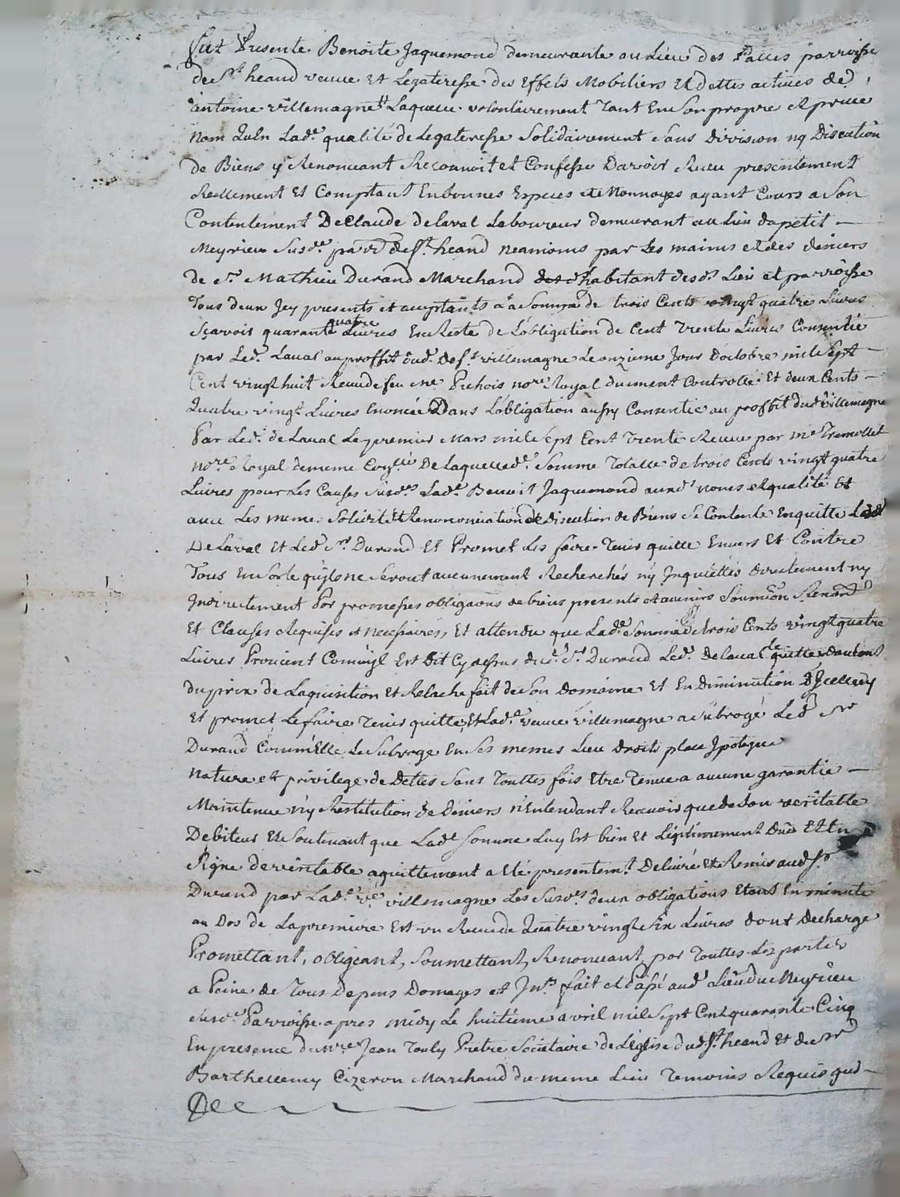 fut Presente Benoite Jaquemond demeurante au Lieu des parroisse
de St heand veuve et Legateresse des Effets Mobiliers et dettes actives de
antoine villemagne Laquelle volontairement tant En Son propre et privé
nom qu'en Lade qualité de Legateresse Solidairement Sans Division ny Discution
de Biens y Renonceant Reconnoit et Confesse Davoir Receu presentement
Reellement Et Comptant En bonnes Especes et Monnoyes ayant Cours a Son
Contentement De Claude Delaval Laboureur demeurant au Lieu de petit
Meyrieu Susd. parr. de St heand neamoins par Les mains et des deniers
de Sr Mathieu Durand Marchand habitant desd. Lieu et parroisse
Tous deux Icy presents et acceptants La Somme de trois Cents vingt quatre Livres
Sçavoir quarante quatre Livres En Reste de Lobligation de Cent Trente Livres Consentie
par Led. Laval au proffit dud. deft villemagne Le onzieme Jour doctobre mil Sept
Cent vingt huit Receu de feu me Prehois nore Royal duement Controllé Et deux Cents
Quatre vingt Livres Enoncée Dans Lobligation aussy Consentie au proffit dud. villemagne
Par Led. de Laval Le premier Mars mil Sept Cent Trente Receue par me Tremollet
nore Royal de meme De Laquelle de. Somme Totalle de trois Cents vingt quatre
Livres pour Les Causes Susd. Lade. Benoit Jaquemond auxd. noms et qualité Et
avec Les meme Solidité et Renonciation de Discution de Biens Se Contente En quitte
De Laval et Led. Sr Durand Et Promet Les faire Tenir quitte Envers et Contre
Tous En Sorte quils ne Seront aucunement Recherchés ny Inquiettés directement ny
Indirectement Par promesses obligaons de biens presents et avenirs Soumion Renond
Et Clauses Requises et necessaires, Et attendu que Lade. Somme de trois Cents vingt quatre
Livres Provient Comme il Est Dit Cy dessus dud. Sr Durand Led. Delaval Le quitte dautant
du prix de Laquisition et Relache fait de Son Domaine Et En Diminution D'Icelluy
Et promet Le faire Tenir quitte, Et Lade. veuve villemagne a Subrogé Led. Sr
Durand Comme Elle Le Subroge En Ses memes Lieu Droits place Ipoteque
Nature et privilege de Dettes Sans Touttes fois Etre Tenue a aucune garantie
Maintenue ny Restitution de deniers n'Entendant Recevoir que de Son veritable
Debiteur Et Soutenant que Lade. Somme Luy Est bien et Legitimement Düe Et En
Signe de veritable aquittement a Eté presentemt. Delivré Et Remis aud. Sr
Durand par Lade. ve villemagne Les Susd. deux obligations Etant En minute
au Dos de La premiere Est un Receu de Quatre vingt Six Livres dont decharge
Promettant, obligeant, Soumettant, Renonceant, par Touttes Les parties
a Peine de Tous Depens Domages et Int. fait et Passé aud. Lieu du Meyrieu
Susd. Parroisse apres midy Le huitieme avril mil Sept Cent quarante Cinq
En presence de mre Jean Touly Pretre Societaire de L'Eglise dud. St heand Et du Sr
Barthellemy Cizeron Marchand du meme Lieu Temoins Requis qui